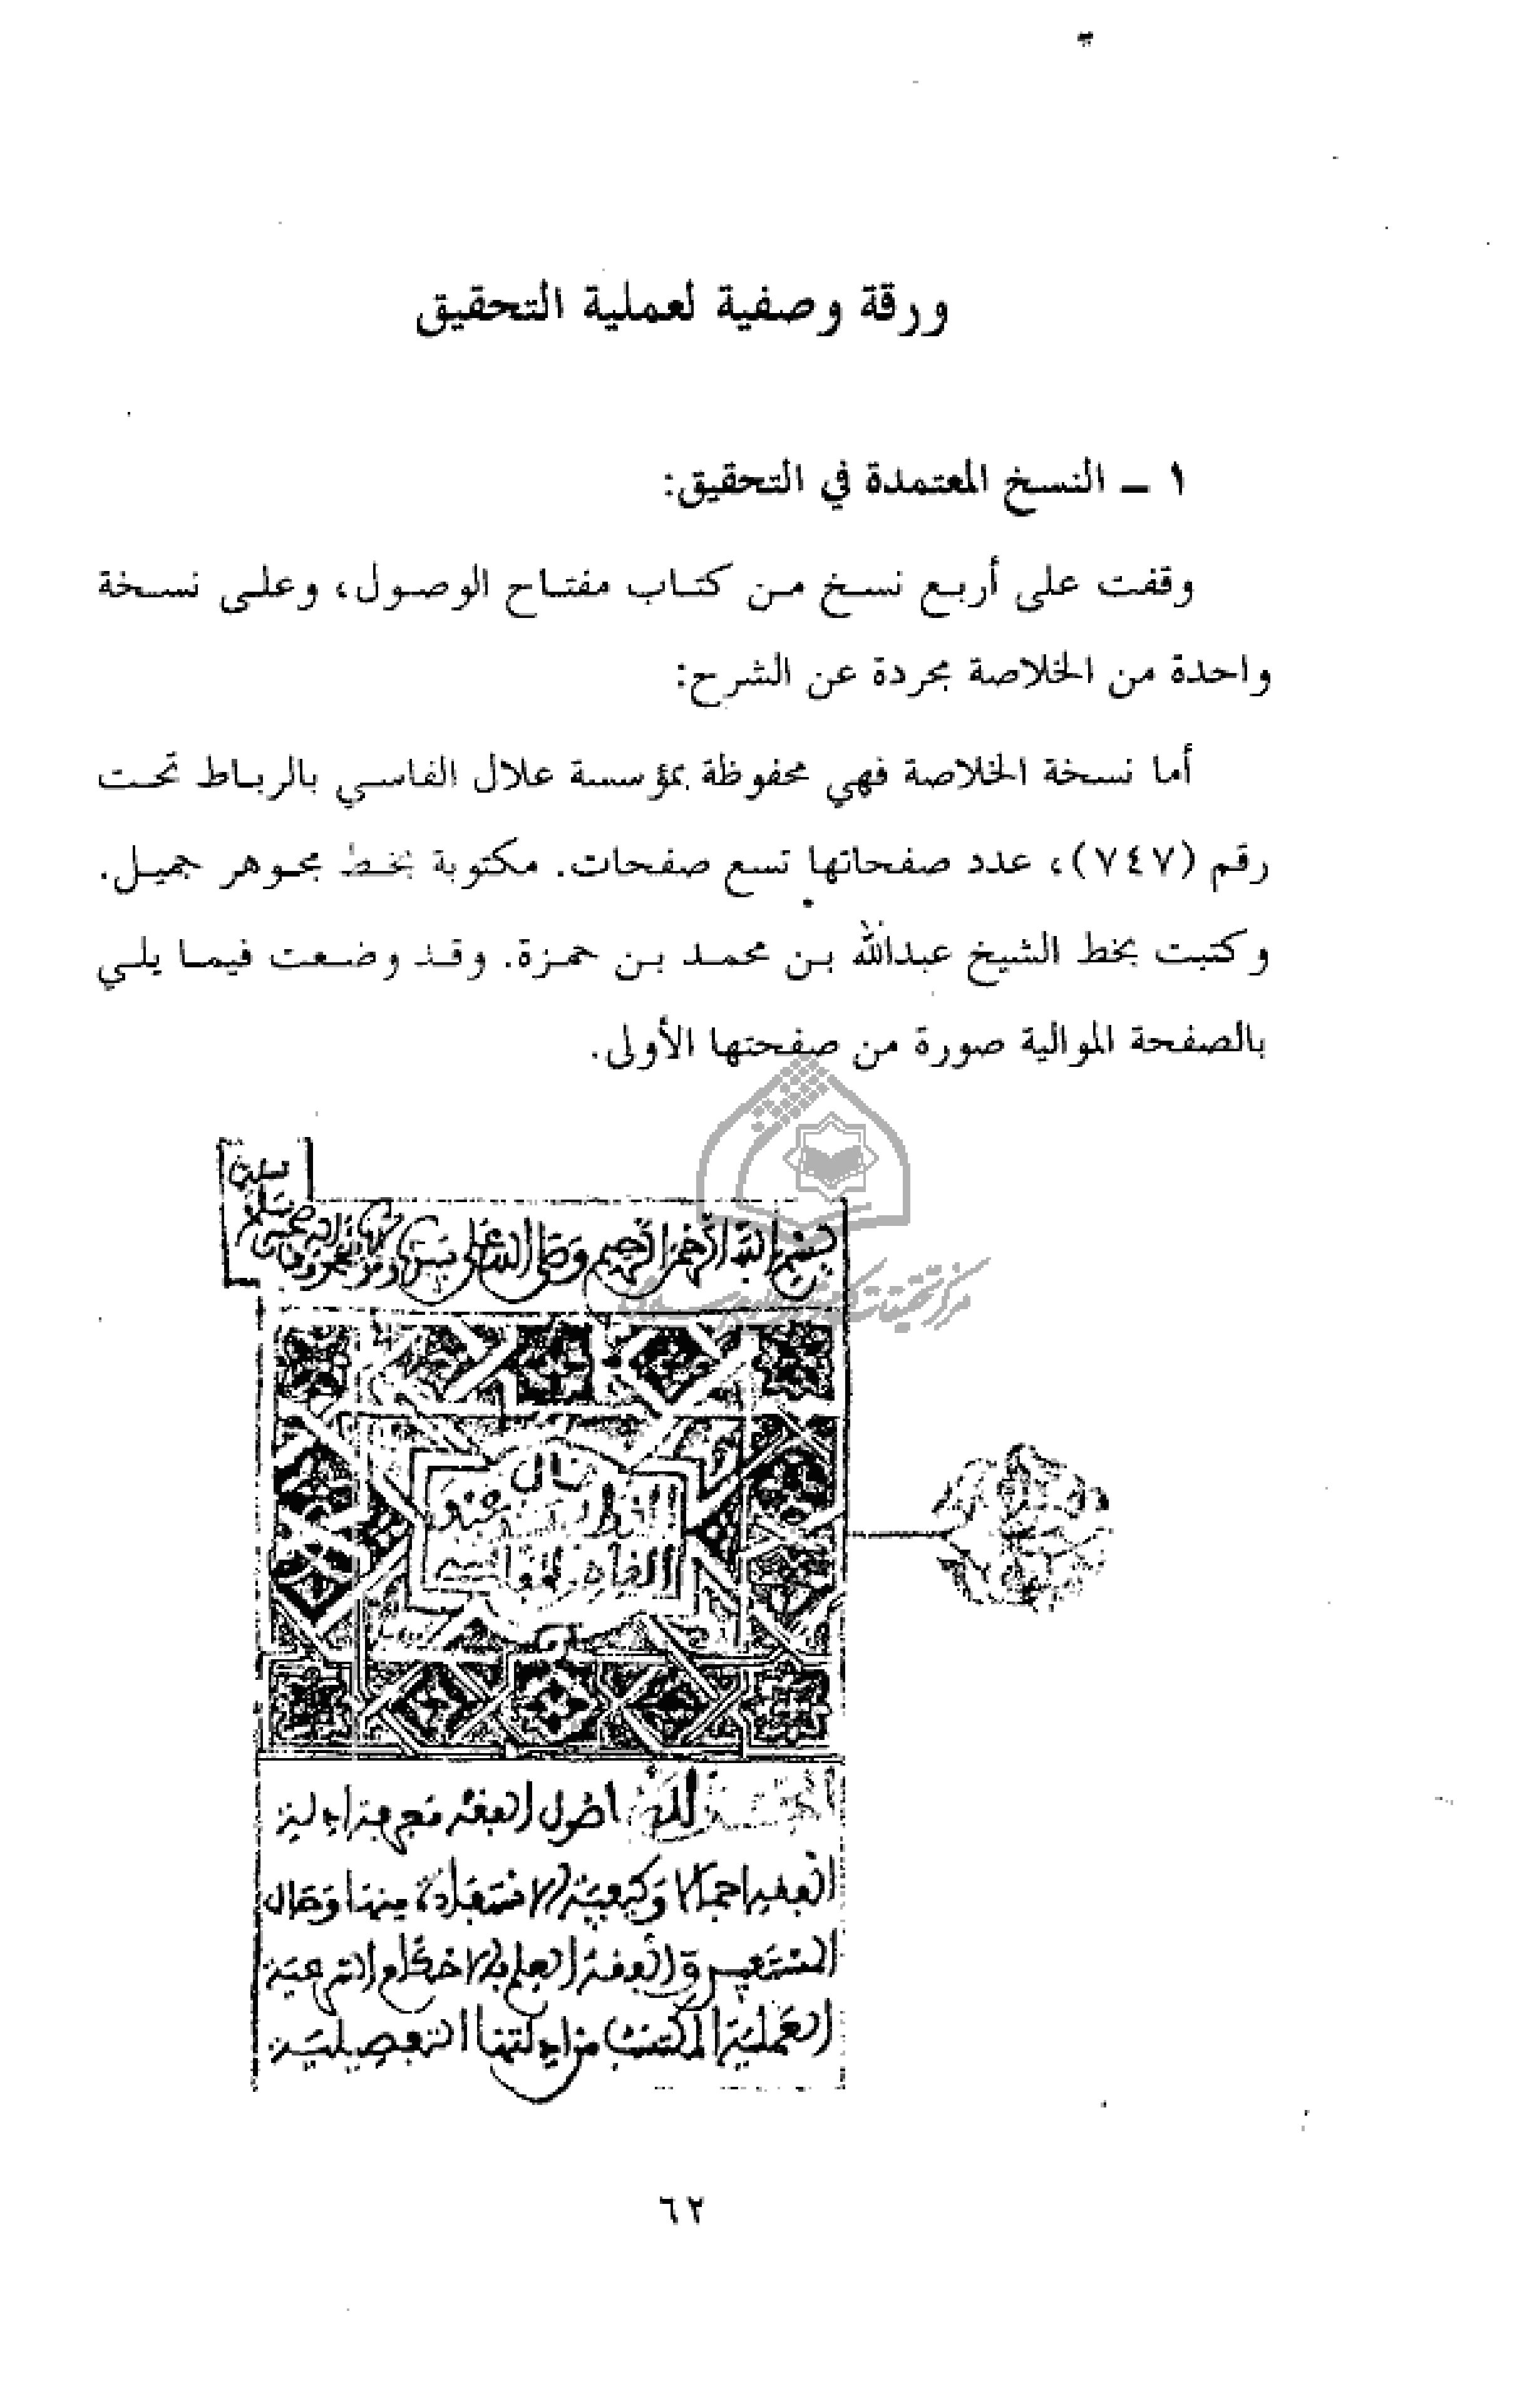 ورقة وصفية لعملية التحقيق
١ ـ النسخ المعتمدة في التحقيق:
وقفت على أربع نسخ من كتاب مفتاح الوصول، وعلى نسخة
واحدة من الخلاصة مجردة عن الشرح:
أما نسخة الخلاصة فهي محفوظة بمؤسسة علال الفاسي بالرباط تحت
رقم (٧٤٧)، عدد صفحاتها تسع صفحات. مكتوبة بخط مجوهر جميل.
وكتبت بخط الشيخ عبدالله بن محمد بن حمزة. وقد وضعت فيما يلي
بالصفحة الموالية صورة من صفحتها الأولى.
بسم الله الرحمن الرحيم وصلى الله على
لله اصول الفقه معرفة ادلة
الفقه اجمالا وكيفية الاستفادة منها وحال
المستفيد والفقه العلم بالاحكام الشرعية
العملية المكتسب من ادلتها التفصيلية
٦٢